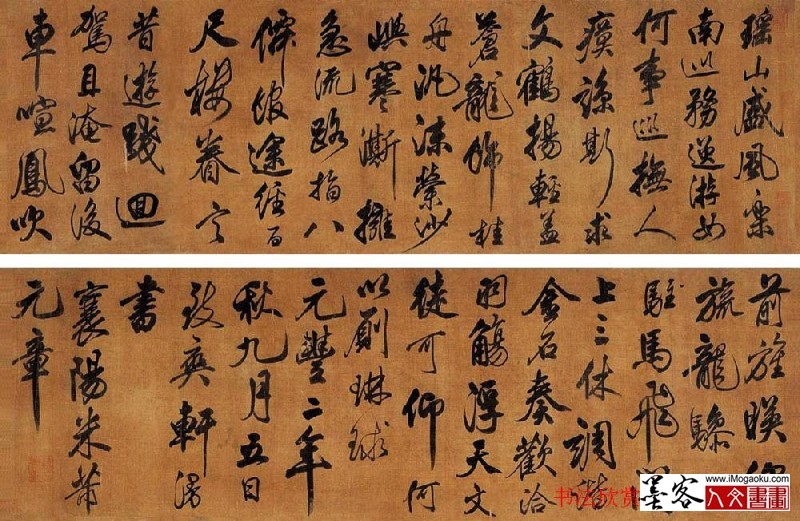 瑤山盛風樂
南巡務逸遊如
何事巡撫人
瘼諒斯求
文鶴揚輕蓋
蒼龍飾桂
舟汎沫縈沙
嶼寒澌擁
急流路指八
僊館途經百
尺樓眷言
昔遊踐迴
駕且淹留後
車喧鳳吹
前旌映
旒龍驂
駐馬飛
上三休調諧
金石奏歡洽
羽觴浮天文
徒可仰何
以廁琳球
元豐二年
秋九月五日
致爽軒漫
書
襄陽米芾
元章
书法欣赏
墨客
www.iMogaoku.com
人文書畫